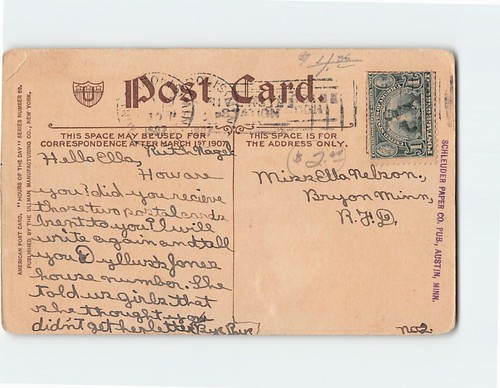 Post Card.
THIS SPACE MAY BE USED FOR
CORRESPONDENCE AFTER MARCH 1ST 1907.
THIS SPACE IS FOR
THE ADDRESS ONLY.
Hello Ella,
How are
you? did you recieve
those two postal cards
I sent to you? I will
write again and tell
you Dyllus Jones
house number. She
told us girls that
she thought you
didn't get her letter Bye Bye
Ruth Nagel
$2.00
Miss Ella Nelson,
Bryon Minn,
R.F.D.
no 2.
AMERICAN POST CARD. "HOURS OF THE DAY" SERIES NUMBER 69.
PUBLISHED BY THE ULLMAN MANUFACTURING CO., NEW YORK.
SCHLEUDER PAPER CO. PUB., AUSTIN, MINN.